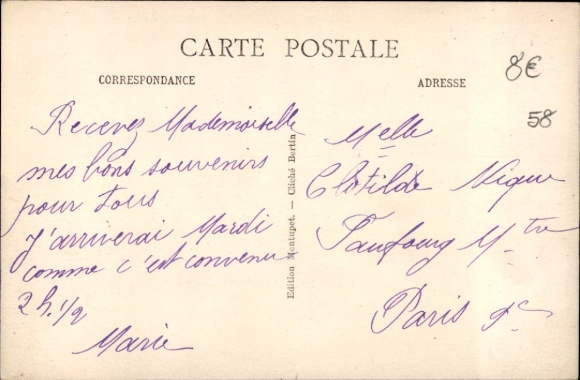 CARTE POSTALE
CORRESPONDANCE
ADRESSE
8€
58
Recevez Mademoiselle
mes bons souvenirs
pour tous
J'arriverai Mardi
comme c'est convenu
2 h. 1/2
Marie
Edition Montupet. — Cliché Bertin
Melle
Clotilde Nique
Faubourg Mtre
Paris 9e